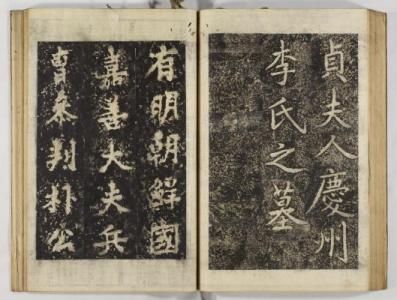 貞夫人慶州
李氏之墓
有明朝鮮國
嘉善大夫兵
曹叅判朴公